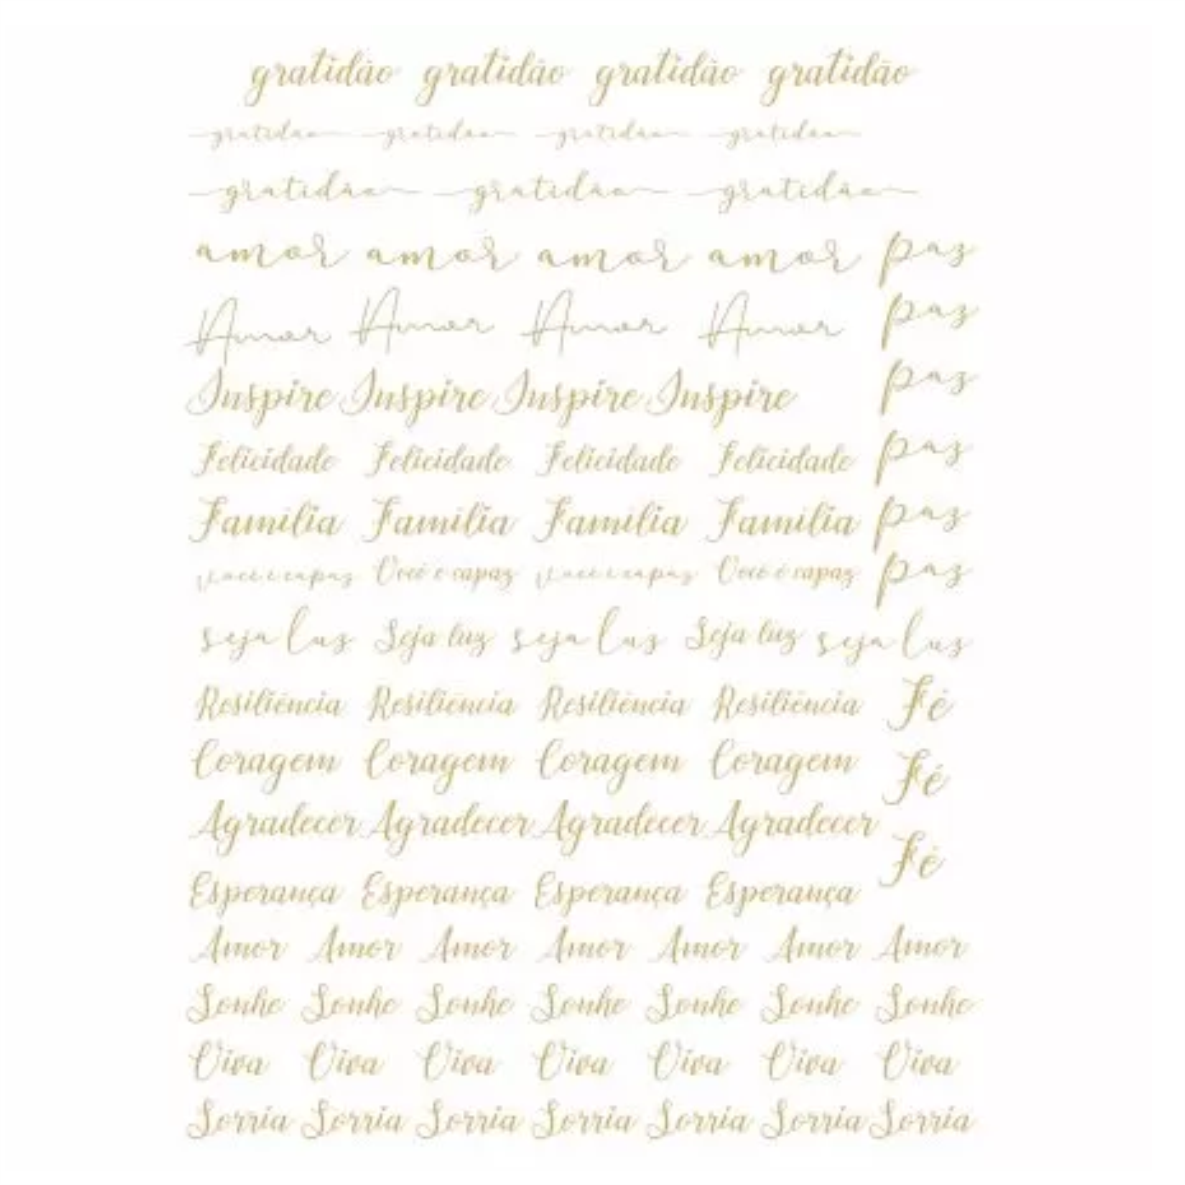 gratidão gratidão gratidão gratidão
gratidão gratidão gratidão gratidão
gratidão gratidão gratidão
amor amor amor amor paz
Amor Amor Amor Amor paz
Inspire Inspire Inspire Inspire paz
Felicidade Felicidade Felicidade Felicidade paz
Família Família Família Família paz
você é capaz Você é capaz você é capaz Você é capaz paz
seja luz Seja luz seja luz Seja luz seja luz
Resiliência Resiliência Resiliência Resiliência Fé
Coragem Coragem Coragem Coragem Fé
Agradecer Agradecer Agradecer Agradecer Fé
Esperança Esperança Esperança Esperança
Amor Amor Amor Amor Amor Amor Amor
Sonhe Sonhe Sonhe Sonhe Sonhe Sonhe Sonhe
Viva Viva Viva Viva Viva Viva Viva
Sorria Sorria Sorria Sorria Sorria Sorria Sorria